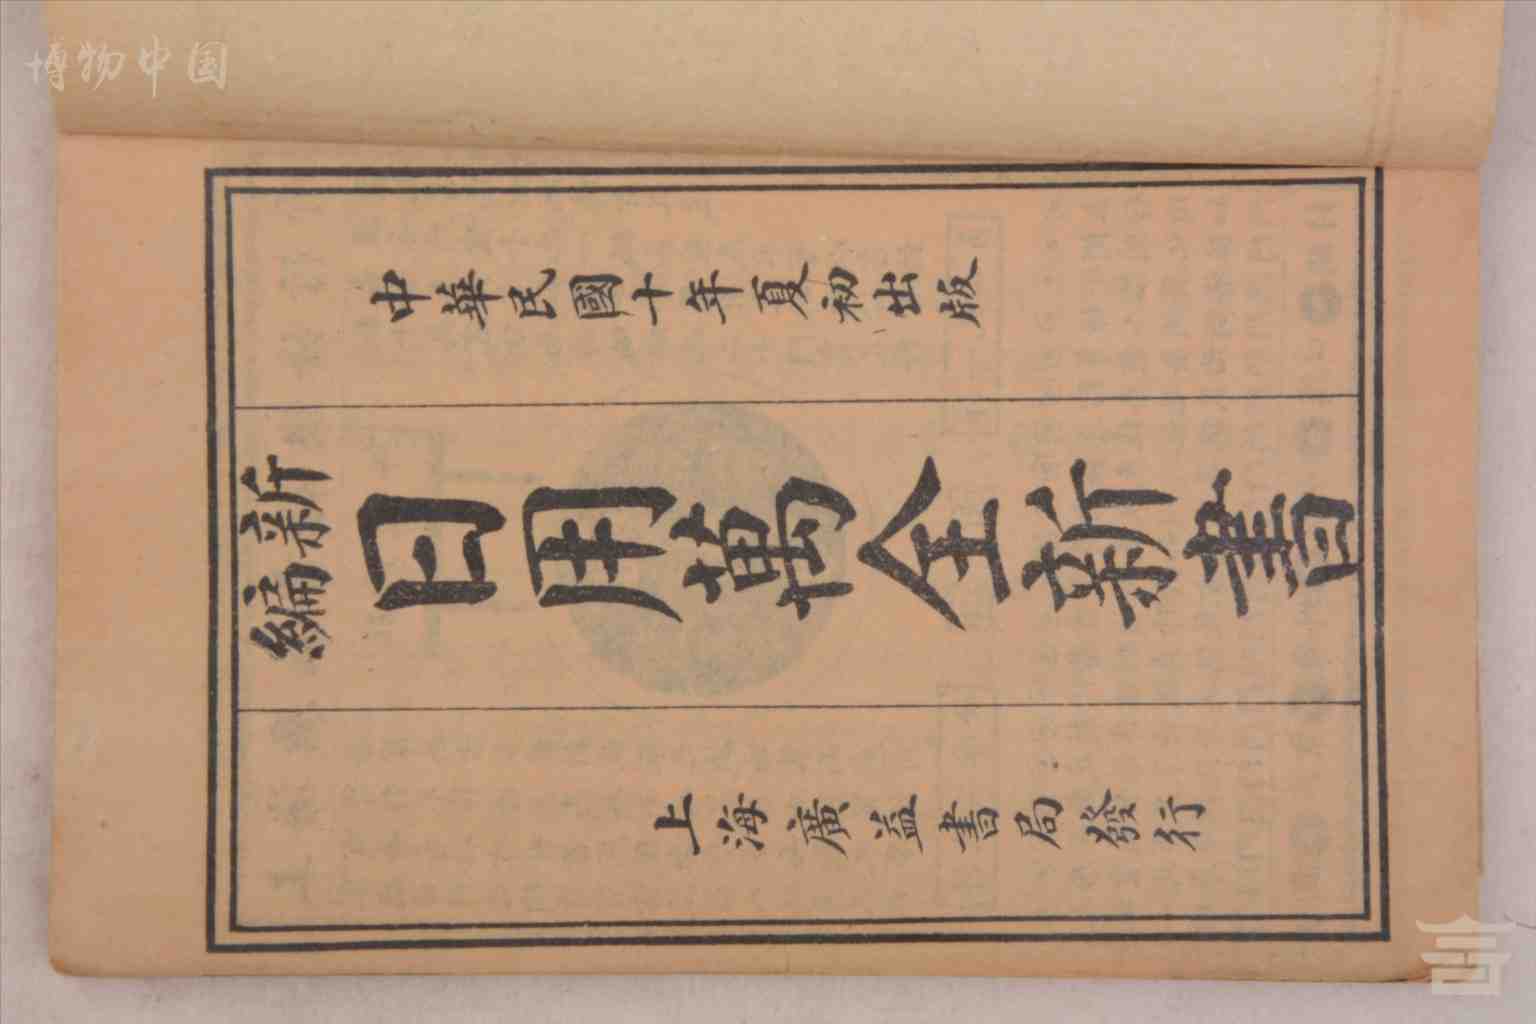 中華民國十年夏初出版
新編
日用萬全新書
上海廣益書局發行
博物中国